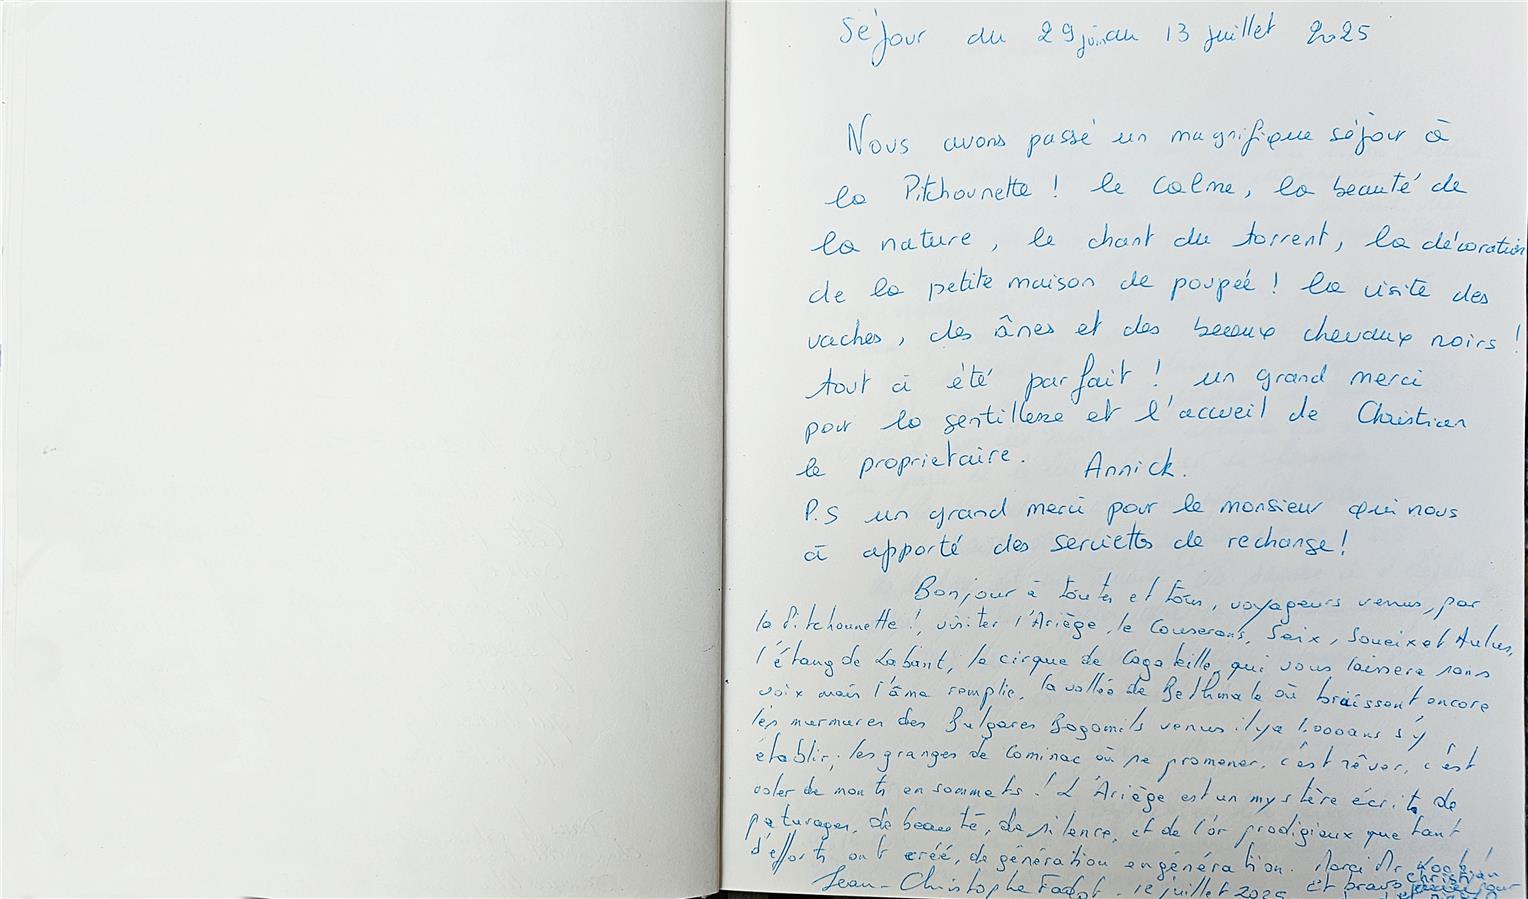 Séjour du 29 juin au 13 juillet 2025
Nous avons passé un magnifique séjour à
la Pitchounette ! le calme, la beauté de
la nature, le chant du torrent, la décoration
de la petite maison de poupéé ! la visite des
vaches, des ânes et des beaux chevaux noirs !
tout à été parfait ! un grand merci
pour la gentillesse et l'accueil de Christian
le proprietaire. Annick.
P.S un grand merci pour le monsieur qui nous
à apporté des serviettes de rechange !
Bonjour à toutes et tous, voyageurs venus, par
la Pitchounette !, visiter l'Ariège, le Couserans, Seix, Soueix et Aulus,
l'étang de Labant, le cirque de Cagateille, qui vous laissera sans
voix mais l'âme remplie, la vallée de Bethmale où bruissent encore
les murmures des Bulgares Bogomils venus il y a 1.000 ans s'y
établir, les granges de Cominac où se promener, c'est rêver, c'est
voler de monts en sommets ! L'Ariège est un mystère écrit de
paturages, de beauté, de silence, et de l'or prodigieux que tant
d'efforts ont créé, de génération en génération. Merci Mr
Christian
Jean-Christophe juillet 2025 Et bravo pour